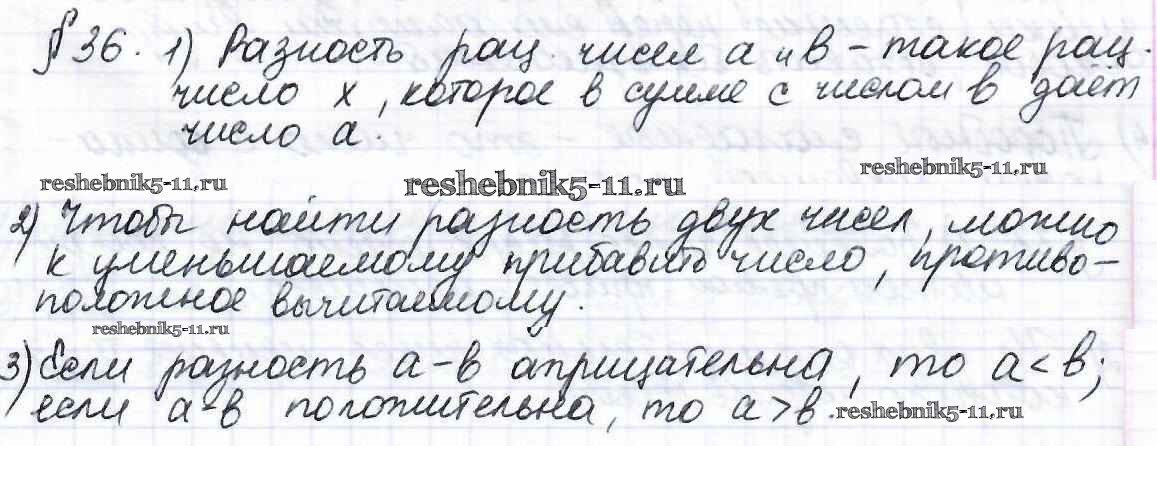 § 36. 1) Разность рац. чисел a и в – такое рац.
число х, которое в сумме с числом в даёт
число а.
reshebnik5-11.ru reshebnik5-11.ru reshebnik5-11.ru
2) Чтобы найти разность двух чисел, можно
к уменьшаемому прибавить число, противо-
положное вычитаемому.
reshebnik5-11.ru
3) Если разность а-в априцательна, то а < в;
если а-в положительна, то а > в. reshebnik5-11.ru